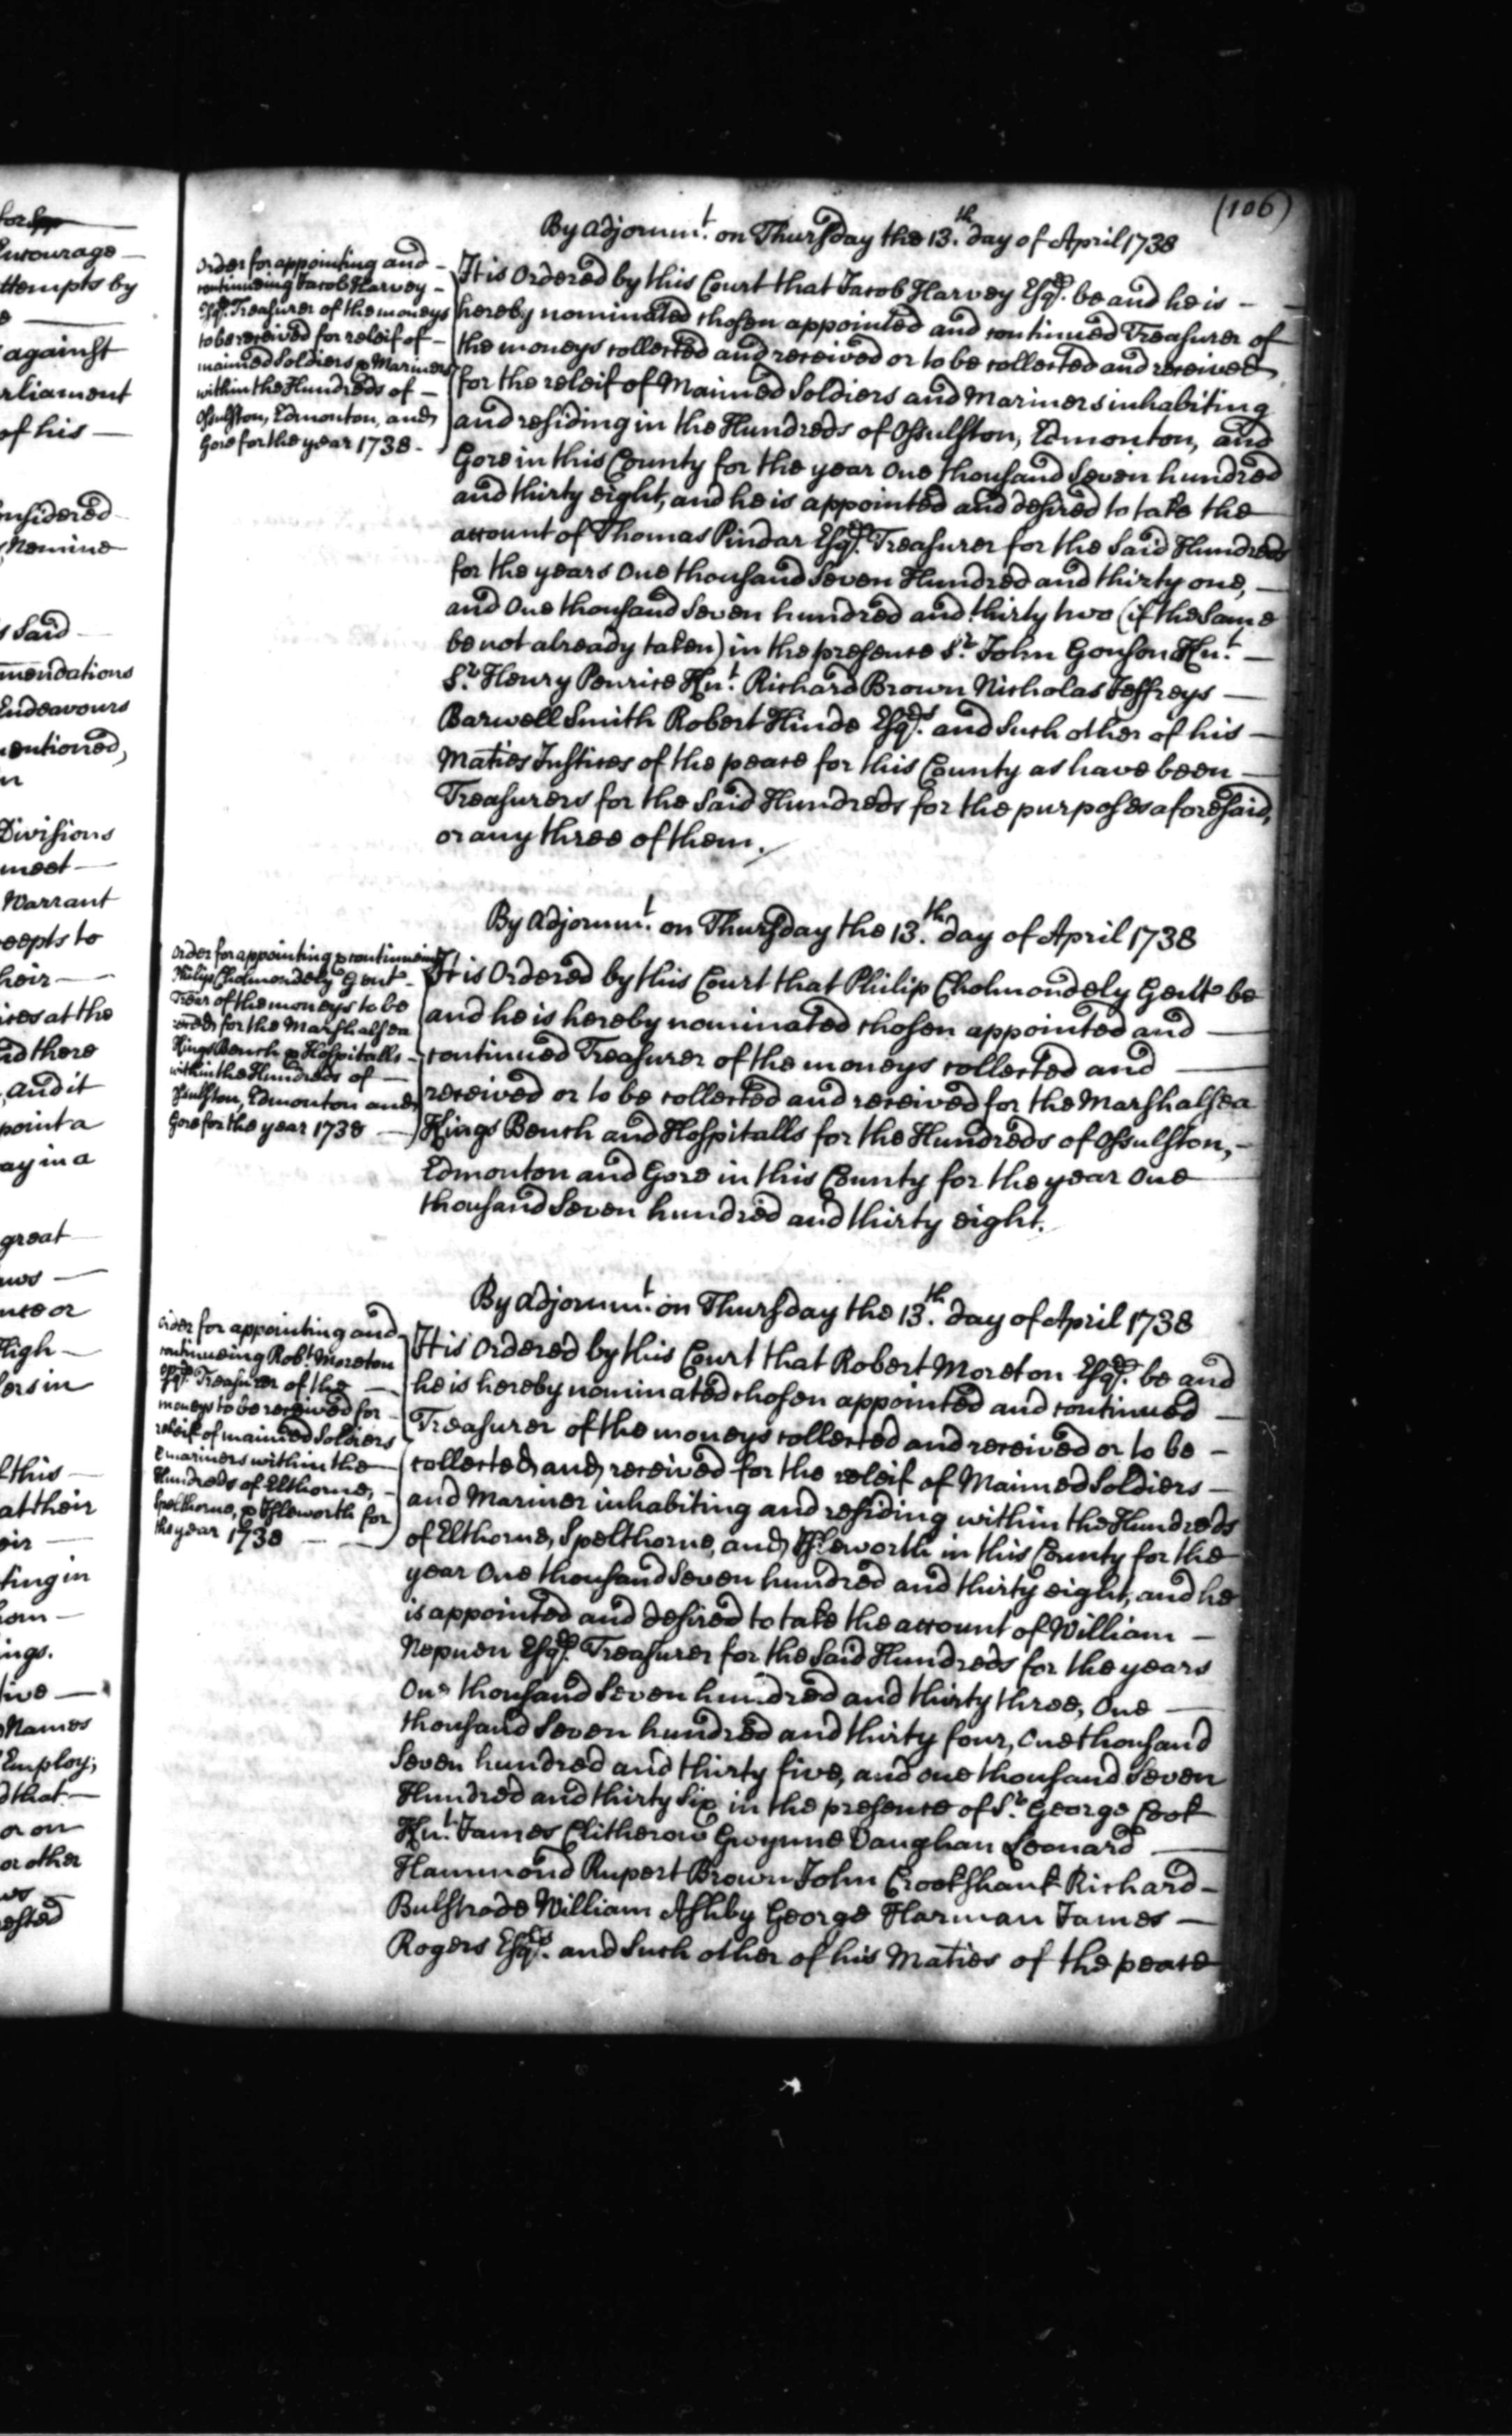 for
Encourage
ttempts by
e
against
rliament
of his
nsidered
Nemine
s Said
mendations
Endeavours
entioned,
n
Divisions
meet
Warrant
eepts to
heir
ices at the
nd there
, and it
point a
ay in a
great
aws
nce or
High
ers in
this
at their
eir
ting in
hom
ings.
tive
Names
Employ;
d that
or on
or other
ws
ested
(106)
By Adjornmt. on Thursday the 13.th day of April 1738
Order for appointing and
continueing Jacob Harvey
Esqr. Treasurer of the moneys
to be received for releif of
maimed Soldiers & Mariners
within the Hundreds of
Ossulston, Edmonton, and
Gore for the year 1738.
It is Ordered by this Court that Jacob Harvey Esqr. be and he is
hereby nominated chosen appointed and continued Treasurer of
the moneys collected and received or to be collected and received
for the releif of Maimed Soldiers and Mariners inhabiting
and residing in the Hundreds of Ossulston, Edmonton, and
Gore in this County for the year One thousand Seven hundred
and thirty eight, and he is appointed and desired to take the
account of Thomas Pindar Esqr. Treasurer for the Said Hundreds
for the years One thousand Seven Hundred and thirty one,
and One thousand Seven hundred and thirty two (if the Same
be not already taken) in the presence Sr. John Gonson Knt.
Sr. Henry Penrice Knt. Richard Brown Nicholas Jeffreys
Barwell Smith Robert Hinde Esqrs. and Such other of his
Maties Justices of the peace for this County as have been
Treasurers for the Said Hundreds for the purposes aforesaid,
or any three of them.
By Adjornmt. on Thursday the 13.th day of April 1738
Order for appointing & continueing
Philip Cholmondely Gent
Trear of the moneys to be
for the Marshalsea
Kings Bench & Hospitalls
within the Hundreds of
Ossulston, Edmonton and
Gore for the year 1738
It is Ordered by this Court that Philip Cholmondely Gent be
and he is hereby nominated chosen appointed and
continued Treasurer of the moneys collected and
received or to be collected and received for the Marshalsea
Kings Bench and Hospitalls for the Hundreds of Ossulston,
Edmonton and Gore in this County for the year One
thousand Seven hundred and thirty eight.
By Adjornmt. on Thursday the 13.th day of April 1738
Order for appointing and
continueing Robt. Moreton
Esqr. Treasurer of the
moneys to be received for
releif of maimed Soldiers
& mariners within the
Hundreds of Elthorne,
Spelthorne, & Isleworth for
the year 1738
It is Ordered by this Court that Robert Moreton Esqr. be and
he is hereby nominated chosen appointed and continued
Treasurer of the moneys collected and received or to be
collected and received for the releif of Maimed Soldiers
and Mariner inhabiting and residing within the Hundreds
of Elthorne, Spelthorne, and Isleworth in this County for the
year One thousand Seven hundred and thirty eight, and he
is appointed and desired to take the account of William
Nepuen Esqr. Treasurer for the Said Hundreds for the years
One thousand Seven hundred and thirty three, One
thousand Seven hundred and thirty four, One thousand
Seven hundred and thirty five, and One thousand Seven
Hundred and thirty Six in the presence of Sr. George Cook
Knt. James Clitherow Gwynne Vaughan Leonard
Hammond Rupert Brown John Crookshank Richard
Bulstrode William Ashby George Harman James
Rogers Esqrs. and Such other of his Maties of the peace